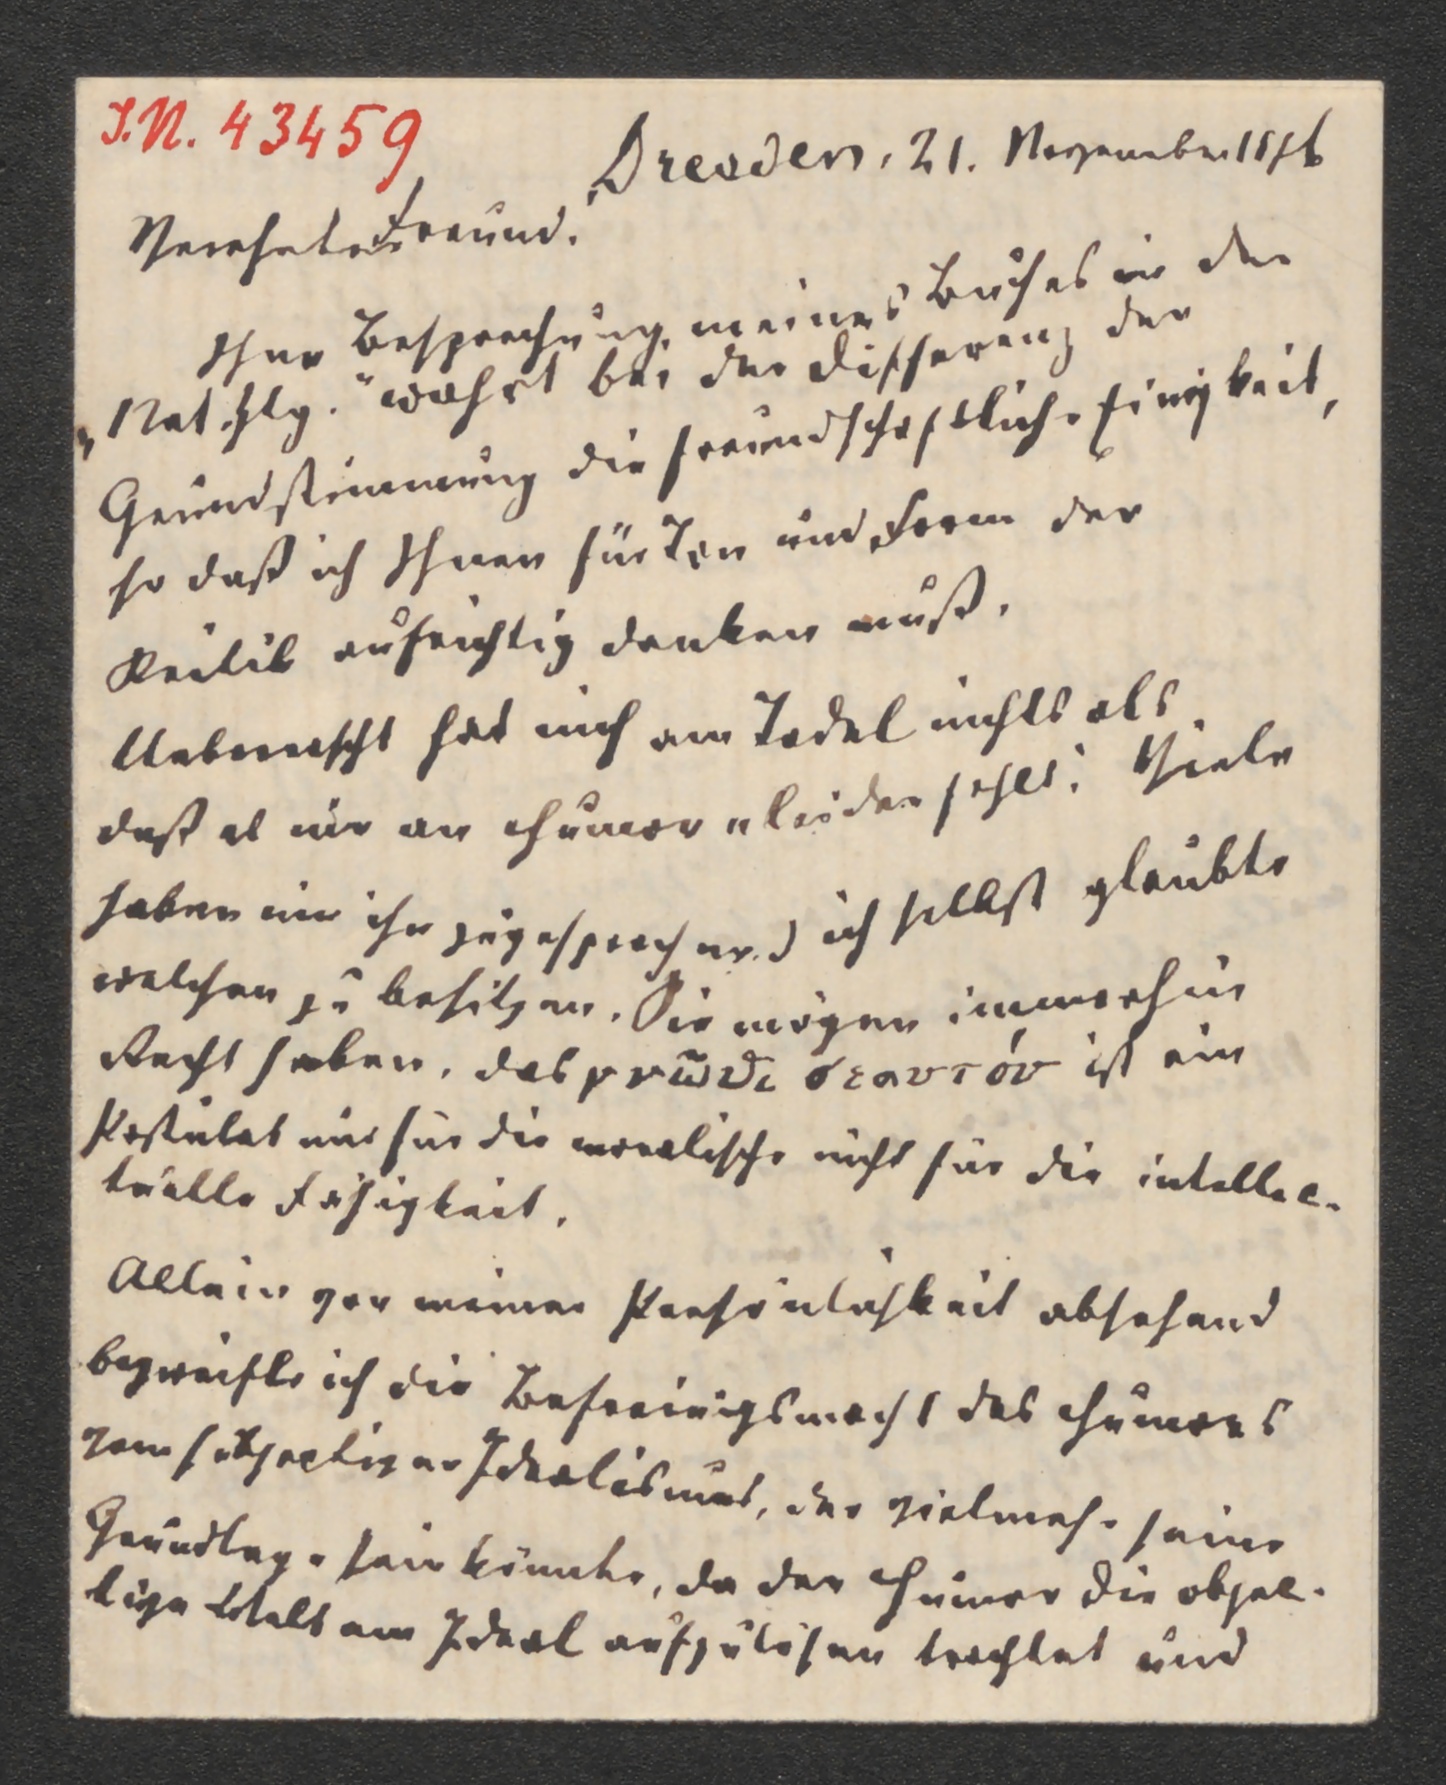 I.N. 43459
Dresden, 21. November
Verehrter Freund.
Ihre Besprechung meines Buches in der
„Nat. Ztg." wahrt bei der Differenz der
Grundstimmung die freundschaftliche Einigkeit,
so daß ich Ihnen für Ton und Form der
Kritik aufrichtig danken muß.
Ueberrascht hat mich am Tadel nichts als
daß es mir an Humor „leider fehle". Viele
haben mir ihn zugesprochen. ich selbst glaubte
welchen zu besitzen. Sie mögen immerhin
Recht haben, das γνῶθι σεαυτόν ist ein
Postulat nur für die moralische nicht für die intellec-
tuelle Fähigkeit.
Allein von meiner Persönlichkeit absehend
bezweifle ich die Befreiungsmacht des Humors
vom subjectiven Idealismus, der vielmehr seine
Grundlage sein könnte, da der Humor die objec-
tive Welt am Ideal aufzulösen trachtet und